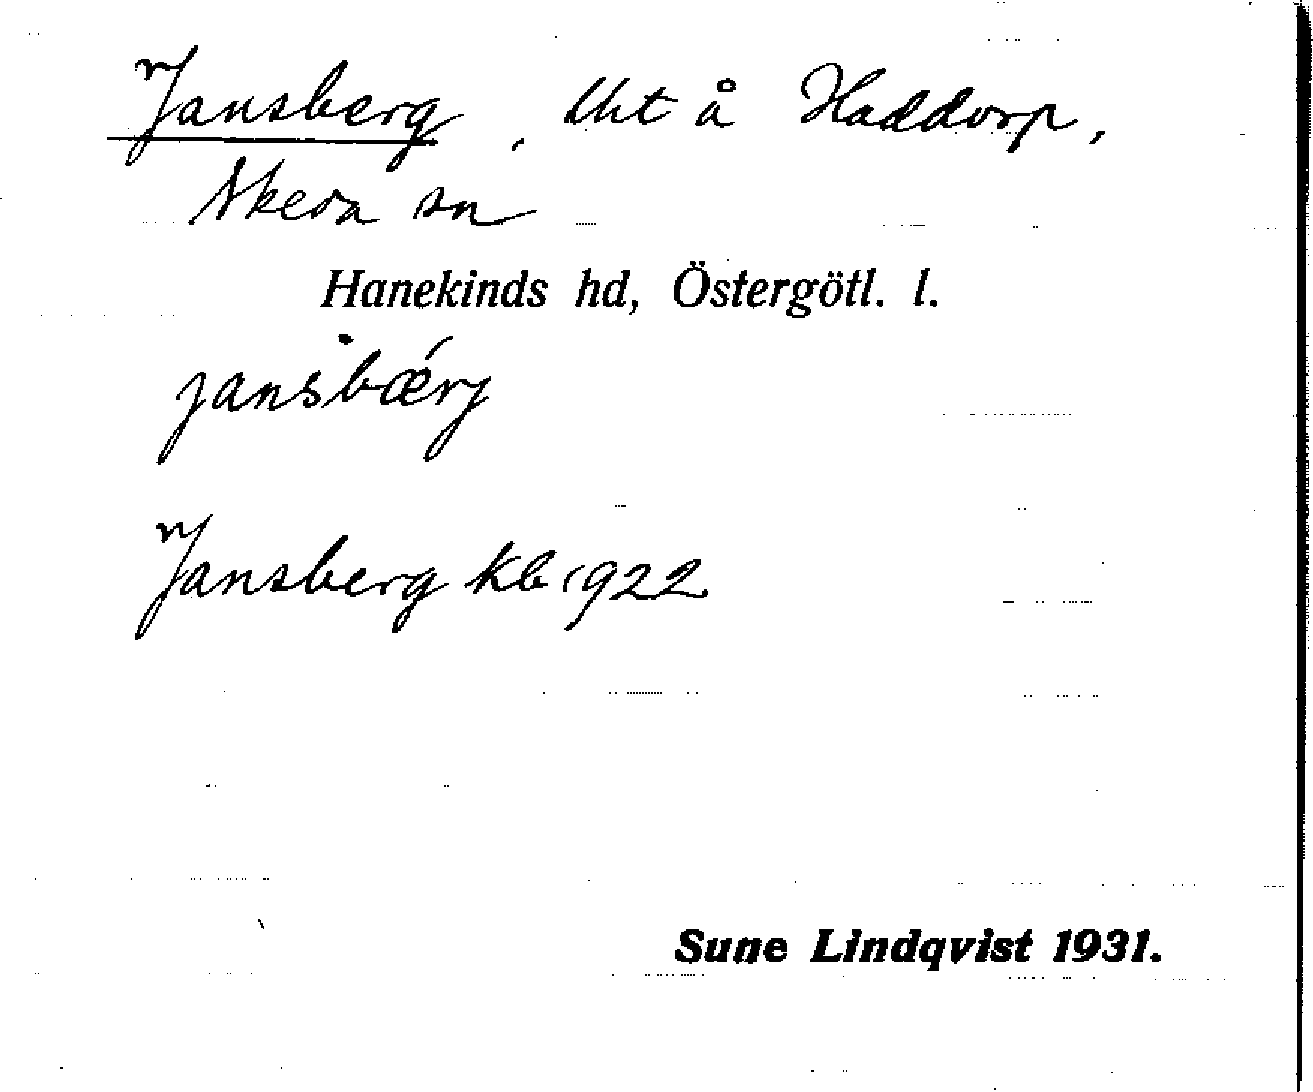 Jansberg, lht å Haddorp,
Skeda sn
Hanekinds hd, Östergötl. l.
jansbǽrj
Jansberg kb 1922
Sune Lindqvist 1931.